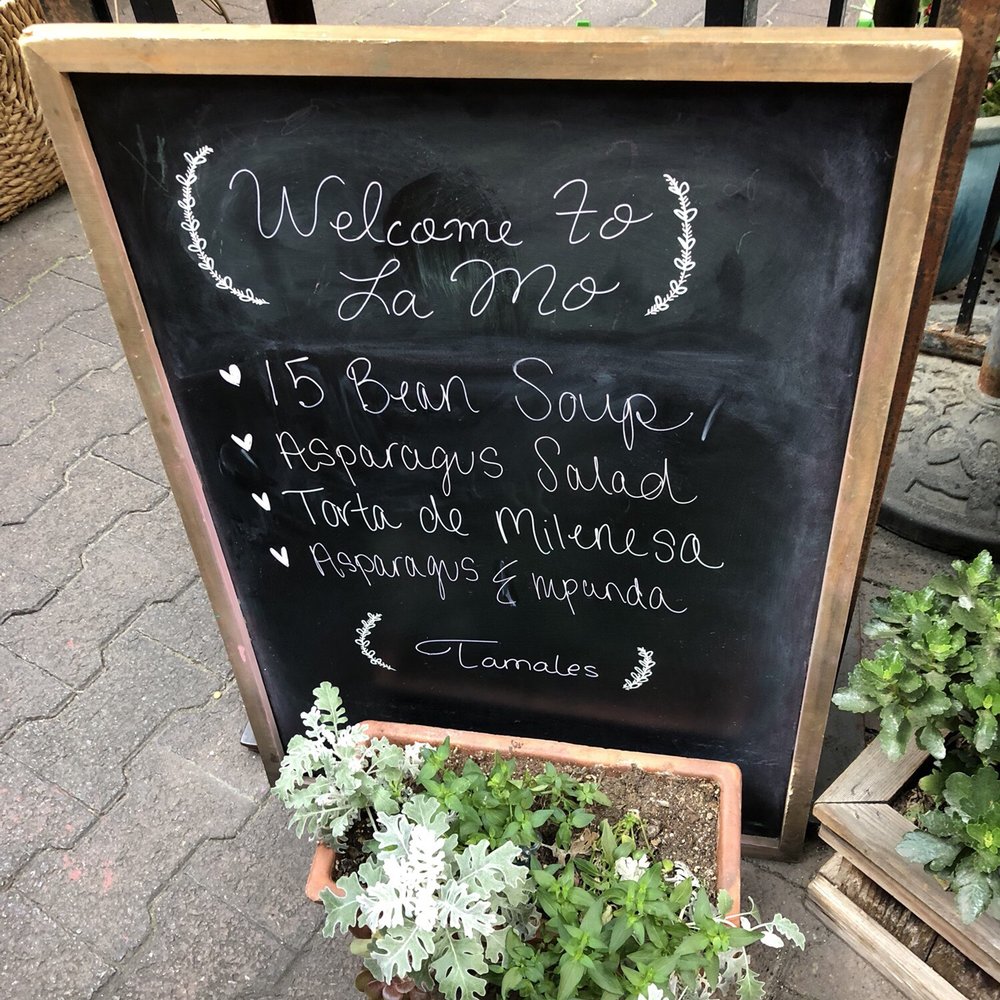 Welcome to
La Mo
15 Bean Soup,
Asparagus Salad
Torta de Milenesa
Asparagus Empanda
Tamales